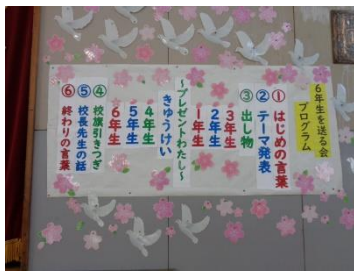 6年生を送る会
プログラム
① はじめの言葉
② テーマ発表
③ 出し物
3年生
2年生
1年生
～プレゼントわたし～
きゅうけい
4年生
5年生
6年生
④ 校旗引きつぎ
⑤ 校長先生の話
⑥ 終わりの言葉